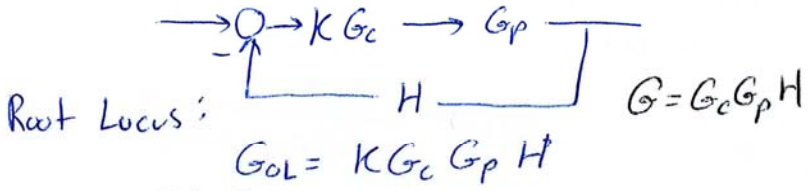 - KGc Gp
H G=GcGpH
Root Locus:
GOL= KGcGpH